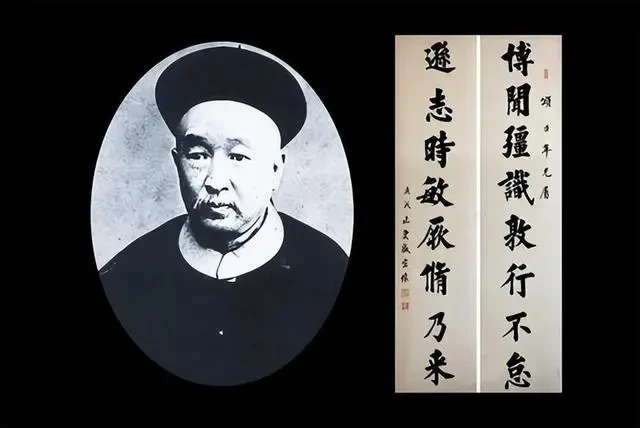 頌年兄屬
博聞彊識敦行不怠
遜志時敏厥脩乃来
止叟盛宣懷